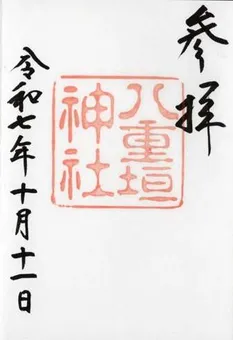 参拝
八重垣
神社
令和七年十月十一日